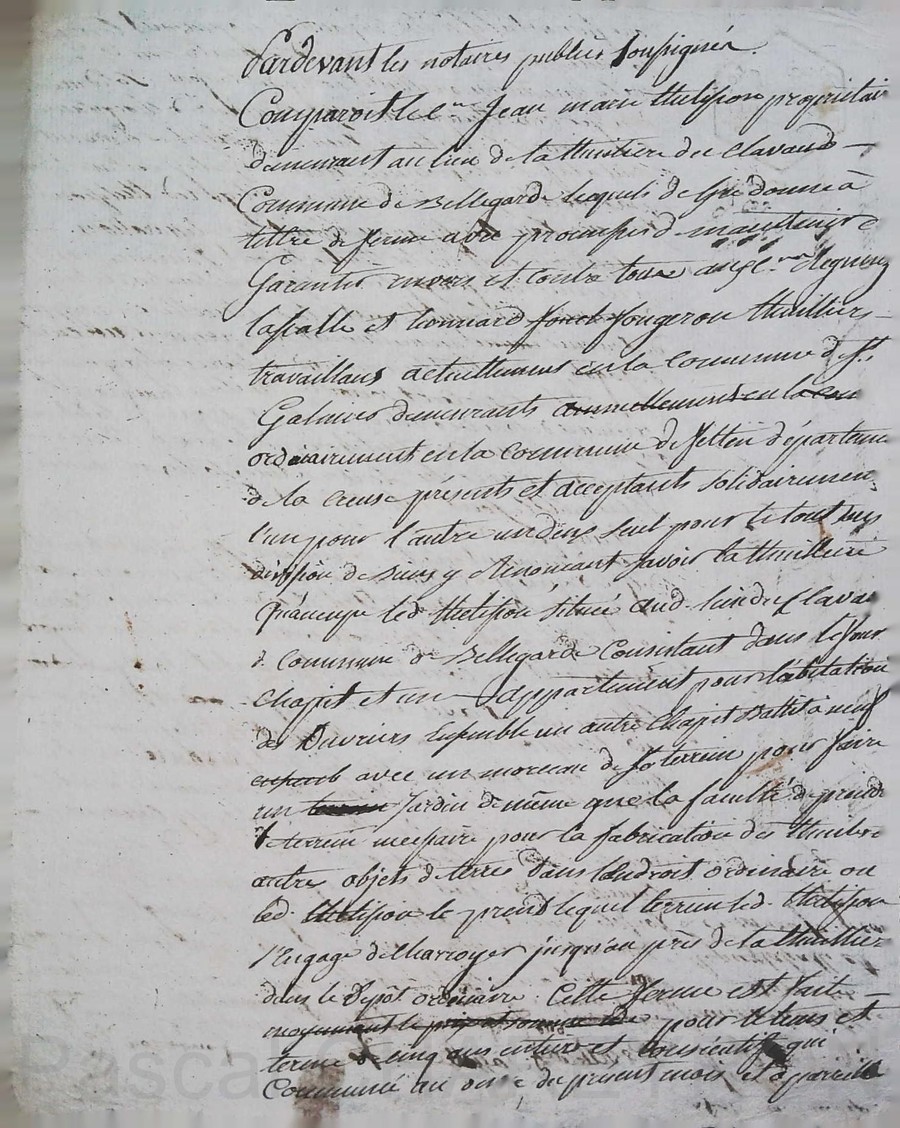 Pardevant les notaires publics soussignés
Comparoit le Cen Jean marie Metision proprietair
demeurant au lieu de la thuiliere du clavaud
Commune de Bellegarde lequel de gré donne à
tittre de ferme avec promesse d maintenir e
Garantir envers et contre tous aux Cens
lasalle et Leonnard fouch fougerou thuilliers
travaillans actuellement en la Commune de St
Galmier demeurants annuellement en la com
ordinairement en la Commune de felletin départeme
de la Creuse présents et acceptants solidairemen
l'un pour l'autre un deux seul pour le tout sans
division de biens y Renoncant savoir la thuilliere
Qu'a led Metision située aud. lieu du Clavau
d. commune de Bellegarde Consistant dans le four
chapit et un appartement pour l'abitation
des Ouvriers Ensemble un autre Chapit Battit à neuf
avec un morceau de terrein pour faire
un terrein Jardin de même que la faculté de prendr
le terrein necessaire pour la fabrication des thuiles
autres objets de terres dans l'endroit ordinaire ou
led. Metision le prend lequel terrein led. Metision
s'Engage de charroyer jusqu'au près de la thuilliere
dans le Depôt ordinaire. Cette ferme est faite
moyennant le prix et somme de pour le tems et
terme de cinq ans entiers et consécutifs qui
Commencé au onze du présent mois et à pareille